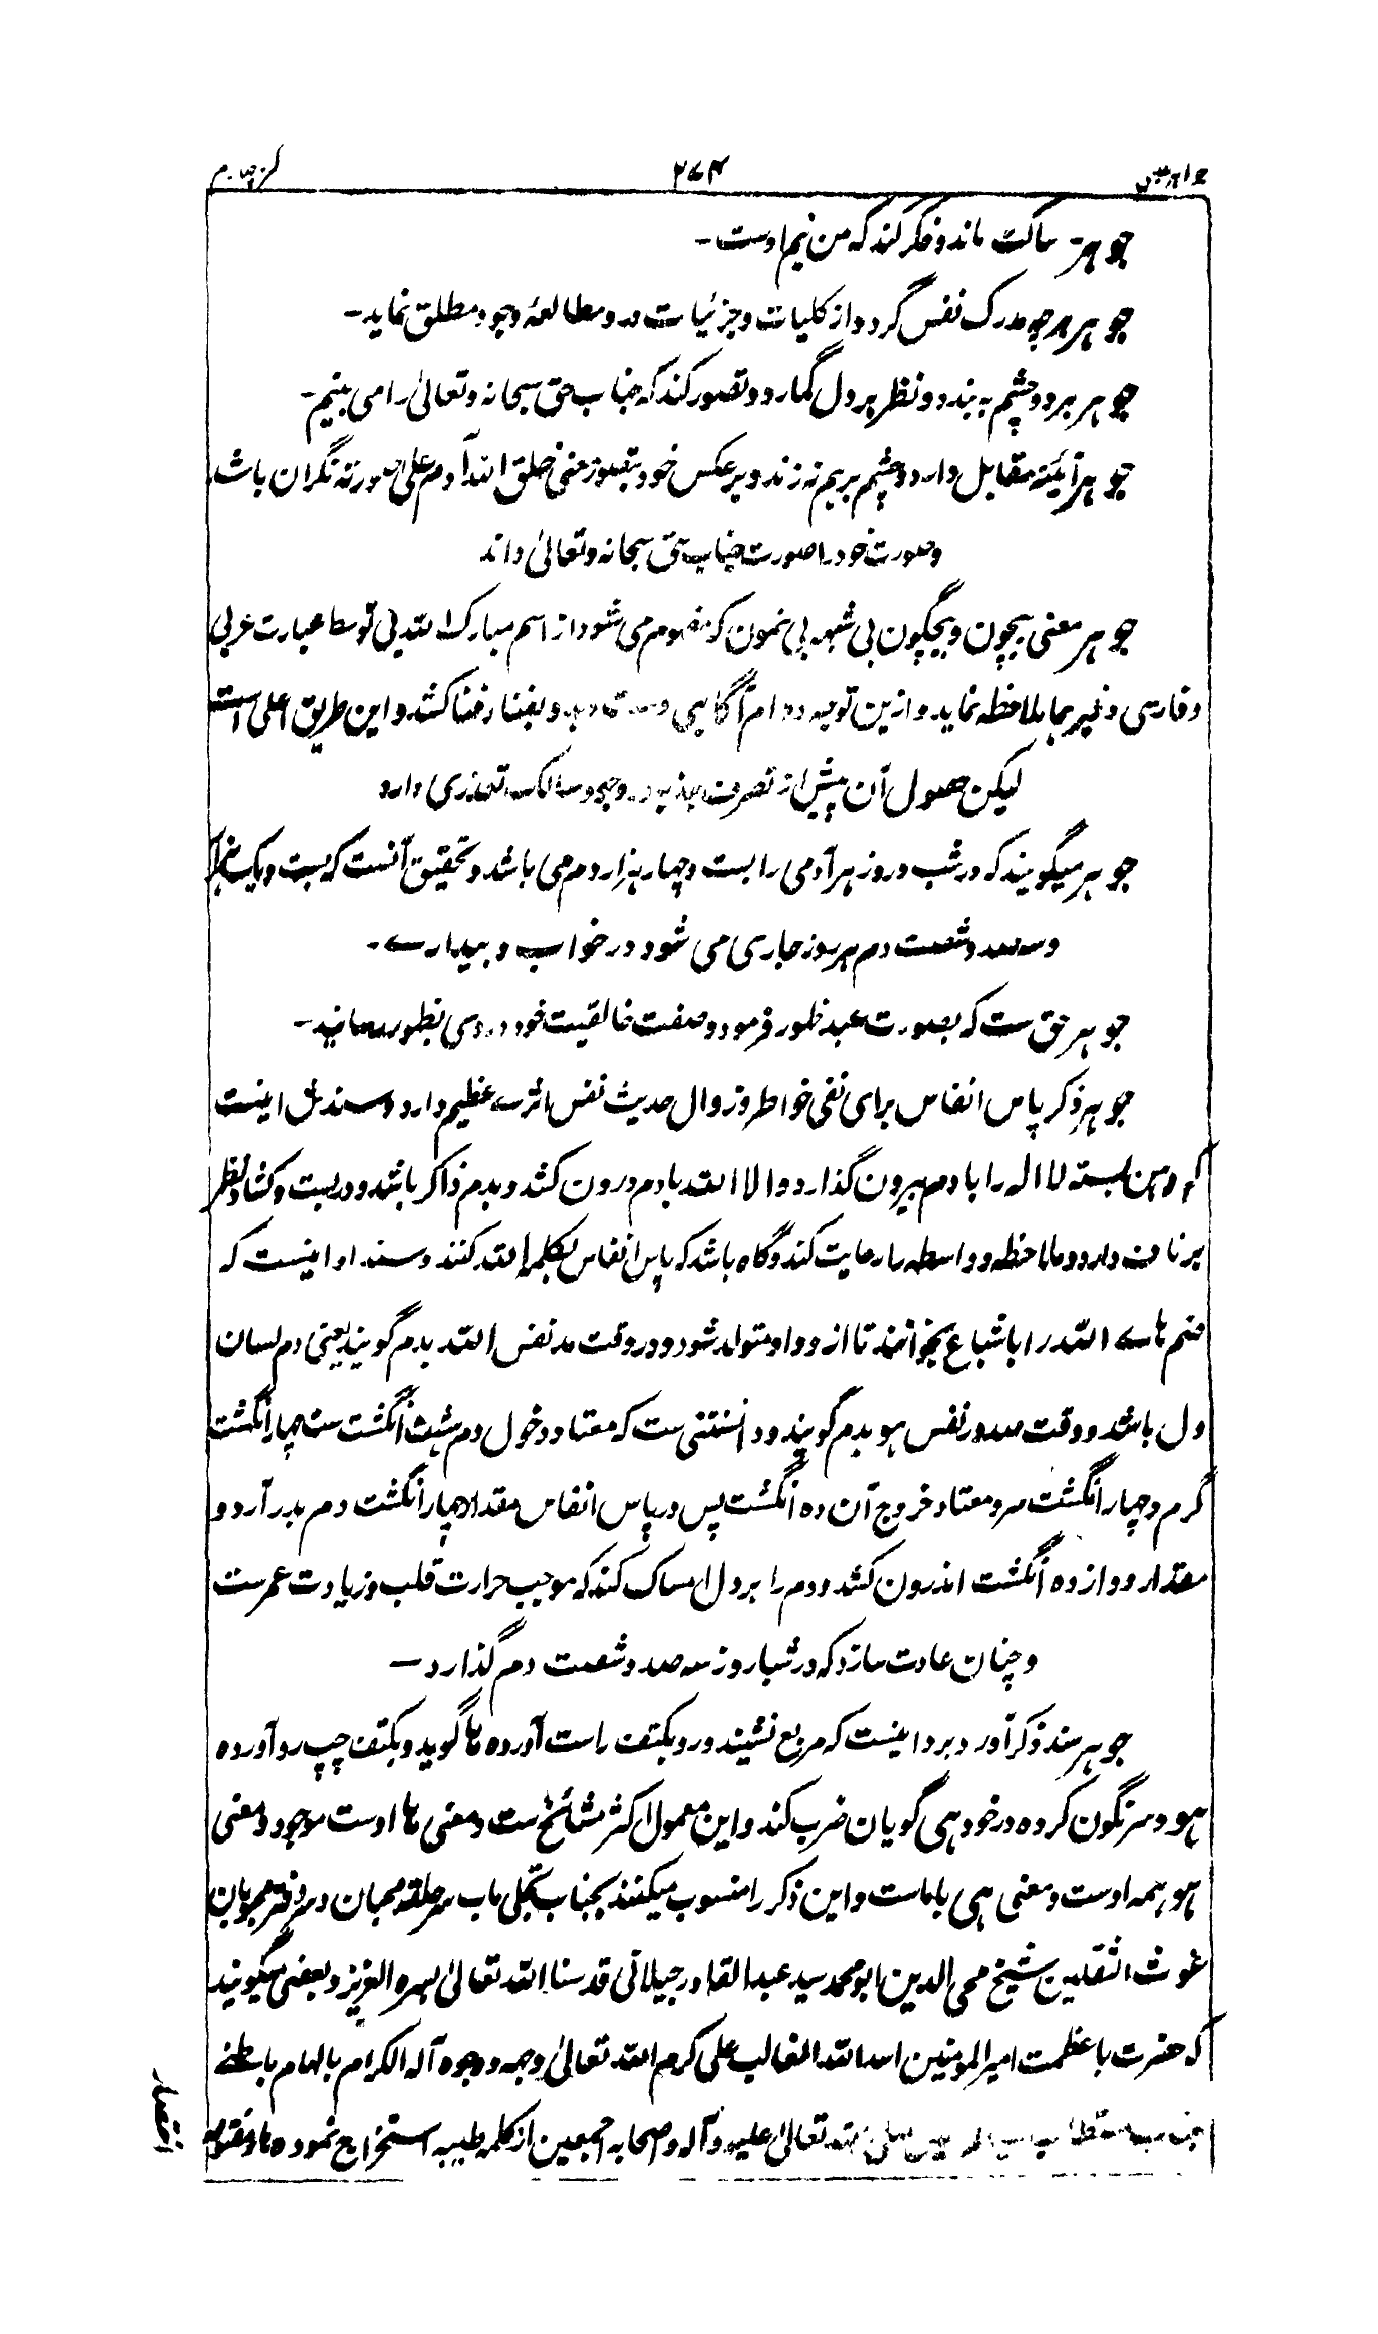 ۲۷۴
جوہر ساکت ماند و فکر کند کہ من نیم اوست
جوہر ہرچہ مدرک نفس گردد از کلیات و جزئیات درو مطالعۂ وجود مطلق نماید
جوہر ہر دو چشم بہ بندد و نظر بر دل گمارد و تصور کند کہ جناب حق سبحانہ و تعالیٰ را می بینم
جوہر آئینہ مقابل دارد و چشم برہم نہ زند و بر عکس خود بتصور معنی خلق اللہ آدم علی صورتہ نگران باشد
و صورت خود را صورت جناب حق سبحانہ و تعالیٰ داند
جوہر معنی بیچون و بیچگون بی شبہہ بی نمون کہ مفہوم می شود از اسم مبارک اللہ بی توسط عبارت عربی
و فارسی و غیرہما بلاحظہ نماید و ازین توجہ دوام آگاہی و بفنا رفنا کشد و این طریق اعلی است
لیکن حصول آن پیش از تصرف جذبہ در وجود سالک تعذری دارد
جوہر میگویند کہ در شب و روز ہر آدمی را بست و چہار ہزار دم می باشد و تحقیق آنست کہ بست و یک ہزار
و سہ صد و شصت دم ہر روز جاری می شود در خواب و بیدارے
جوہر حق ست کہ بصورت عبد ظہور فرمود و صفت خالقیت خود در وی بظہور رسانید
جوہر ذکر پاس انفاس برای نفی خواطر و زوال حدیث نفس اثرے عظیم دارد و سندش اینست
کہ دہن بستہ لا الہ را با دم بیرون گذارد و الا اللہ با دم درون کشد و بدم ذاکر باشد و در بست و کشاد نظر
بر ناف دارد و ملاحظہ و واسطہ را رعایت کند و گاہ باشد کہ پاس انفاس بکلمہ اللہ کنند و سند او اینست کہ
ضم ہاے اللہ را باشباع بخوانند تا از و واو متولد شود و در وقت مد نفس اللہ بدم گویند یعنی دم لسان
دل باشد و وقت صدور نفس ہو بدم گویند و دانستنی ست کہ معتاد دخول دم ہشت انگشت ست چہار انگشت
گرم و چہار انگشت سرد و معتاد خروج آن دہ انگشت پس در پاس انفاس مقدار چہار انگشت دم بدر آرد و
مقدار دوازدہ انگشت اندرون کشد و دم را بر دل امساک کند کہ موجب حرارت قلب و زیادت عمر ست
و چنان عادت سازد کہ در شباروز سہ صد و شصت دم گذارد
جوہر سند ذکر آورد و برد اینست کہ مربع نشیند و رو بکتف راست آوردہ ہا گوید و بکتف چپ رو آوردہ
ہو و سرنگون کردہ در خود ہی گویان ضرب کند و این معمول اکثر مشائخ ست و معنی ہا اوست موجود و معنی
ہو ہمہ اوست و معنی ہی باماست و این ذکر را منسوب میکنند بجناب تجلی باب سر حلقہ محبان و سر دفتر محبوبان
غوث الثقلین شیخ محی الدین ابو محمد سید عبد القادر جیلانی قدسنا اللہ تعالیٰ بسرہ العزیز و بعضی میگویند
کہ حضرت با عظمت امیر المومنین اسد اللہ الغالب علی کرم اللہ تعالیٰ وجہہ و وجوہ آلہ الکرام بالہام باطنے
تعالیٰ علیہ و آلہ و اصحابہ اجمعین از کلمہ طیبہ استخراج نمودہ